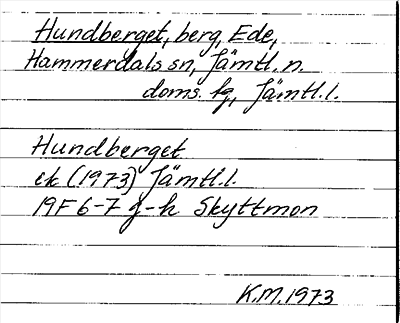 Hundberget, berg, Ede,
Hammerdals sn, Jämtl. n.
doms. fg, Jämtl. l.
Hundberget
ek (1973) Jämtl. l.
19F 6-7 g-h Skyttmon
K.M. 1973